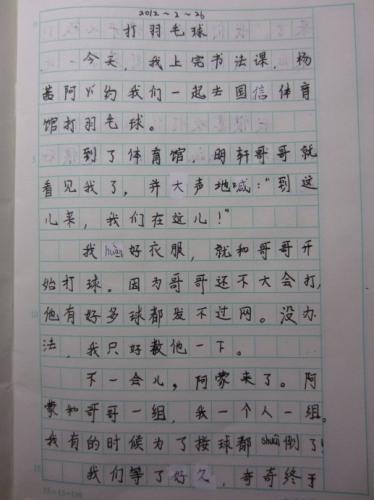 2012-2-26
打羽毛球
今天，我上完书法课，杨
茜阿yí约我们一起去国信体育
馆打羽毛球。
到了体育馆，明轩哥哥就
看见我了，并大声地喊：“到这
儿来，我们在这儿！”
我huàn好衣服，就和哥哥开
始打球。因为哥哥还不大会打，
他有好多球都发不过网。没办
法，我只好教他一下。
不一会儿，阿蒙来了。阿
蒙和哥哥一组，我一个人一组。
我有的时候为了接球都shuāi倒了！
我们等了好久，奇奇终于